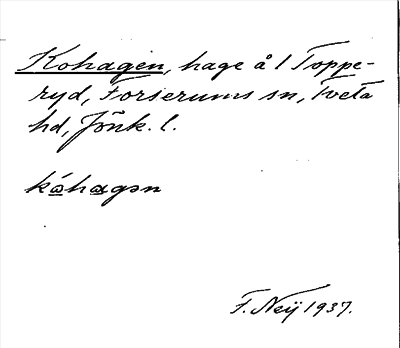 Kohagen, hage å 1 Toppe-
ryd, Forserums sn, Tveta
hd, Jönk. l.
kóhagən
F. Neij 1937.